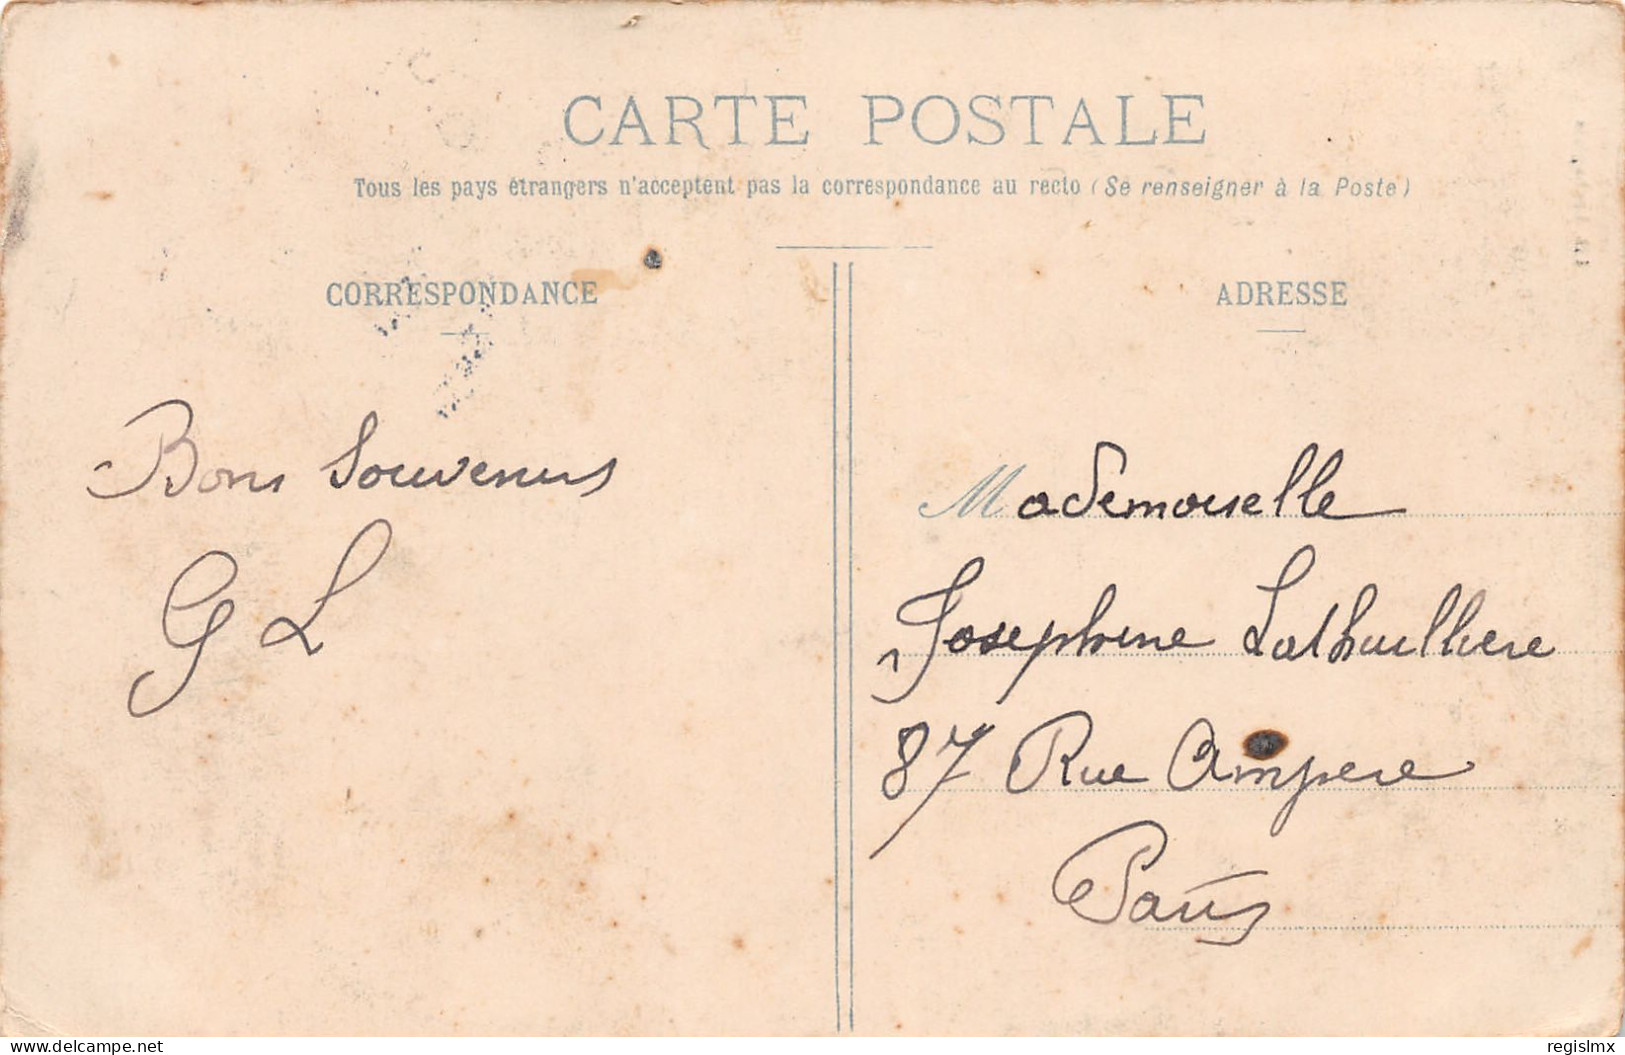 CARTE POSTALE
Tous les pays étrangers n'acceptent pas la correspondance au recto (Se renseigner à la Poste)
CORRESPONDANCE
Bons Souvenirs
G L
ADRESSE
Mademoiselle
Josephine Lathuilliere
87 Rue Ampere
Paris
www.delcampe.net
regislmx